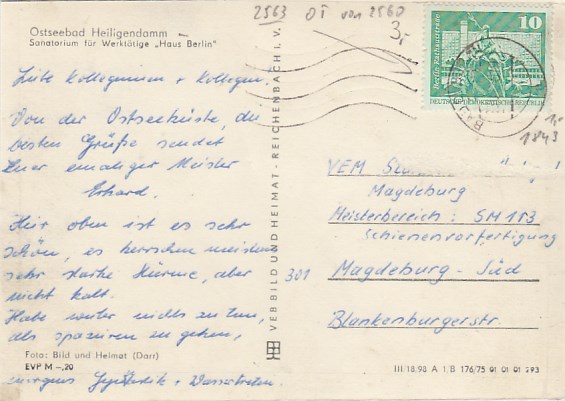 2563 OT von 2560
3,-
Ostseebad Heiligendamm
Sanatorium für Werktätige „Haus Berlin"
Liebe Kolleginnen + Kollegen
Von der Ostseeküste, die
besten Grüße sendet
Euer ehemaliger Meister
Erhard.
Hier oben ist es sehr
schön, es herrschen meistens
sehr starke Stürme, aber
nicht kalt.
Habe weiter nichts zu tun,
als spazieren zu gehen,
Foto: Bild und Heimat (Darr)
EVP M –,20
morgens Gymnastik + Wassertreten.
VEB BILD UND HEIMAT · REICHENBACH I. V.
Berlin Rathausstraße
10
DEUTSCHE DEMOKRATISCHE REPUBLIK
1,-
1843
VEM
Magdeburg
Meisterbereich: SM 183
Schienenvorfertigung
301 Magdeburg-Süd
Blankenburgerstr.
III 18 98 A 1 B 176/75 01 01 01 293